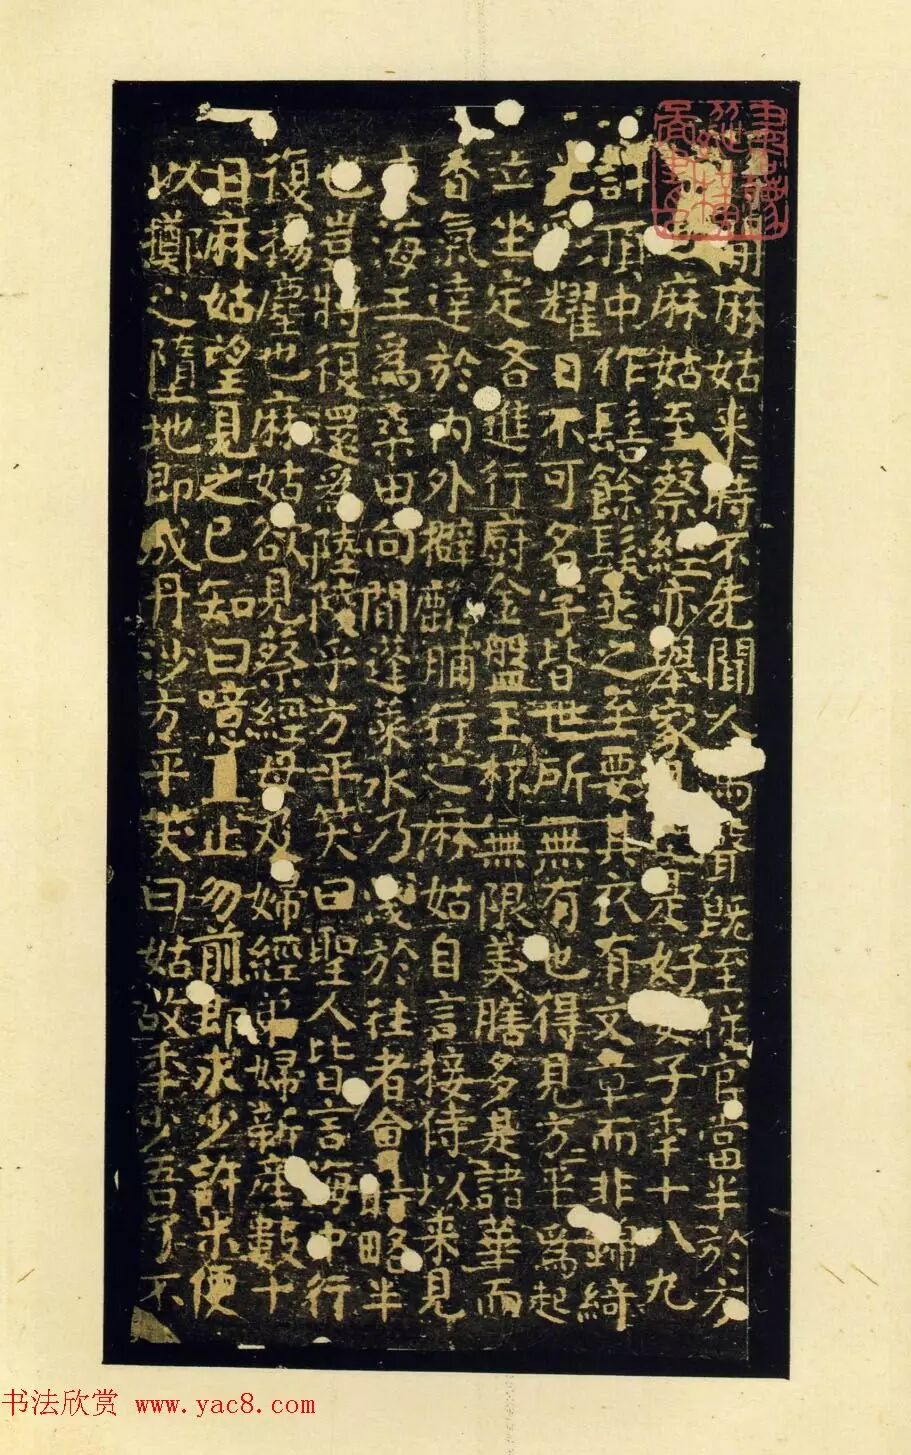 間麻姑来来時不先聞人馬聲既至從官當半於方
麻姑至蔡經亦舉家見是好女子年十八九
許頂中作髻餘髮垂之至要其衣有文章而非錦綺
光彩耀日不可名字皆世所無有也得見方平方平為起
立坐定各進行廚金盤玉杯無限美膳多是諸華而
香氣達於內外擗麟脯行之麻姑自言接侍以来見
東海三為桑田向間蓬萊水乃淺於往者會時略半
也豈將復還為陵陸乎方平笑曰聖人皆言海中行
復揚塵也麻姑欲見蔡經母及婦經弟婦新產數十
日麻姑望見之已知曰噫且止勿前即求少許米便
以擲之墮地即成丹沙方平笑曰姑故年少吾了不
书法欣赏 www.yac8.com